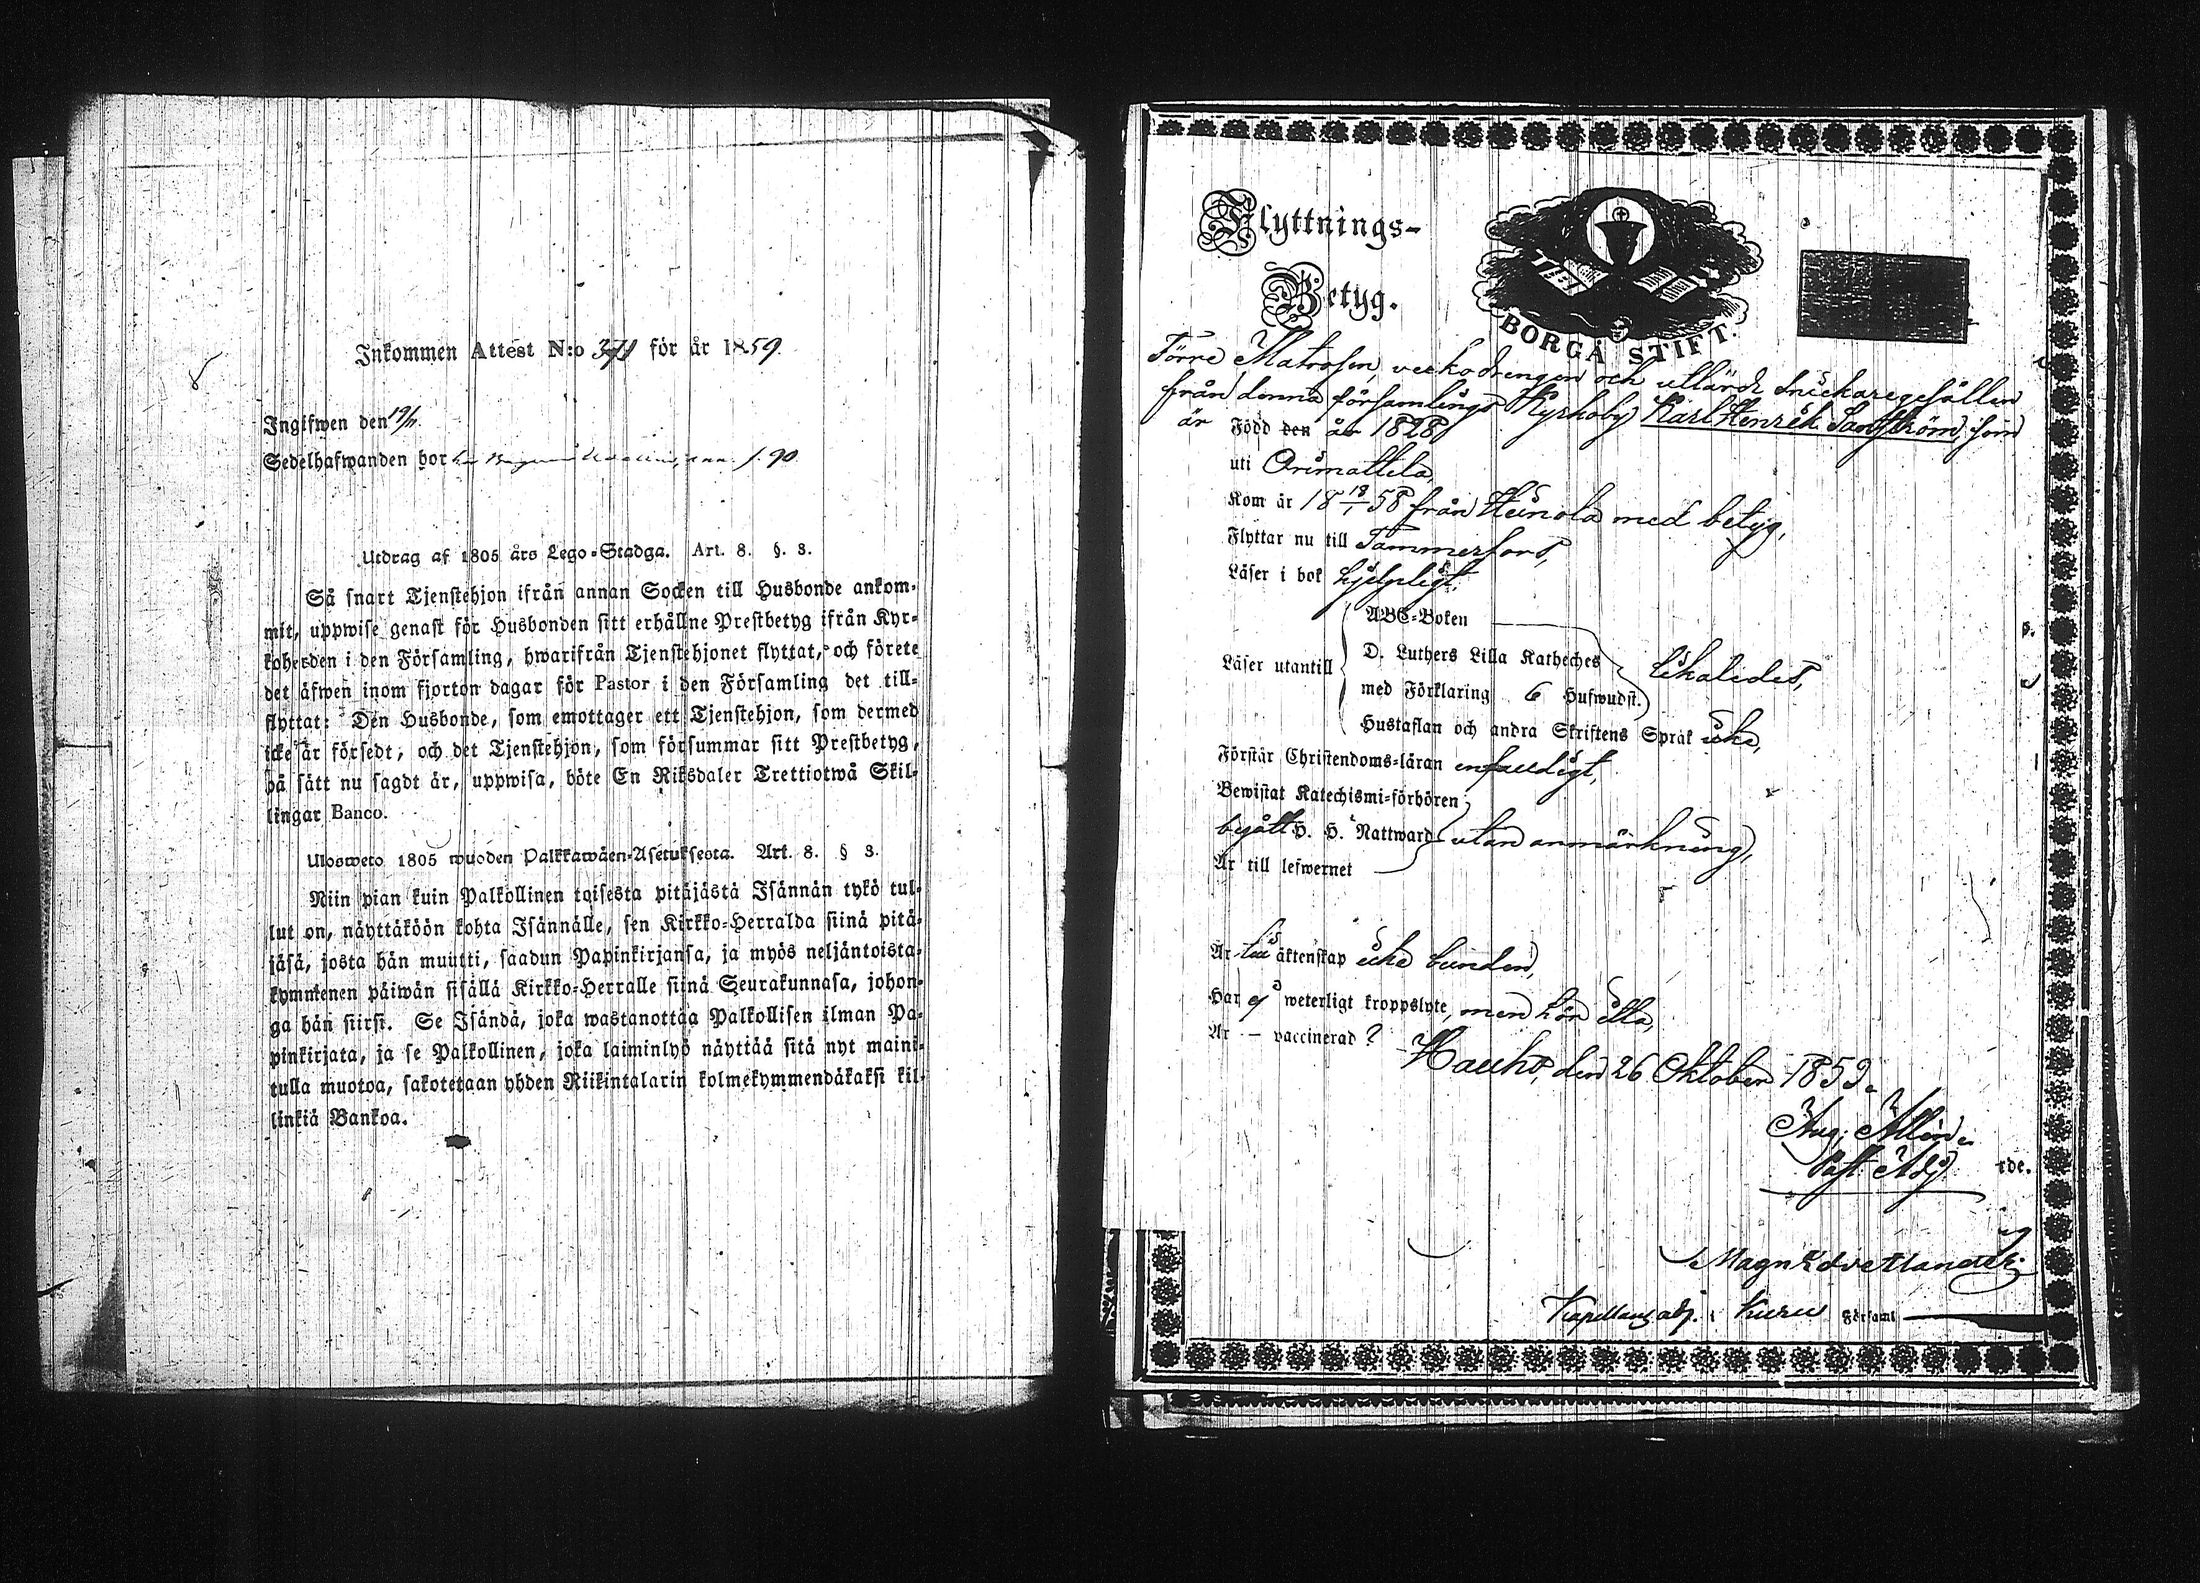 Inkommen Attest N:o 371 för år 1859.
Ingifwen den 19/11.
Sedelhafwanden bor hos s. 90
Utdrag af 1805 års Lego-Stadga. Art. 8. §. 3.
Så snart Tjenstehjon ifrån annan Socken till Husbonde ankom-
mit, uppwise genast för Husbonden sitt erhållne Prestbetyg ifrån Kyr-
koherden i den Församling, hwarifrån Tjenstehjonet flyttat, och förete
det äfwen inom fjorton dagar för Pastor i den Församling det till-
flyttat: Den Husbonde, som emottager ett Tjenstehjon, som dermed
icke är försedt, och det Tjenstehjon, som försummar sitt Prestbetyg,
på sätt nu sagdt är, uppwisa, böte En Riksdaler Trettiotwå Skil-
lingar Banco.
Ulosweto 1805 wuoden Palkkawäen-Asetuksesta. Art. 8. § 3.
Niin pian kuin Palkollinen toisesta pitäjästä Isännän tykö tul-
lut on, näyttäköön kohta Isännälle, sen Kirkko-Herralda siinä pitä-
jäsä, josta hän muutti, saadun Papinkirjansa, ja myös neljäntoista-
kymmenen päiwän sisällä Kirkko-Herralle siinä Seurakunnasa, johon-
ga hän siirsi. Se Isändä, joka wastanottaa Palkollisen ilman Pa-
pinkirjata, ja se Palkollinen, joka laiminlyö näyttää sitä nyt maini-
tulla muotoa, sakotetaan yhden Riikintalarin kolmekymmendäkaksi kil-
linkiä Bankoa.
Flyttnings-
Betyg.
BORGÅ STIFT.
Förre Matrosen, och utlärde snickaregesällen
från denna församlings Kyrkoby Karl Henrik Sandström, som
är Född den år 1828
uti Orimattila,
Kom år 18 18/1 58 från Heinola med betyg,
Flyttar nu till Tammerfors,
Läser i bok hjelpligt,
ABC-Boken
Läser utantill D. Luthers Lilla Katheches
med Förklaring 6 Hufwudst.
Hustaflan och andra Skriftens Språk icke,
Förstår Christendoms-läran enfaldigt,
Bewistat Katechismi-förhören
begått H. H. Nattward utan anmärkning,
Är till lefwernet
Är till äktenskap icke bunden,
Har ej weterligt kroppslyte, men hör illa,
Är – vaccinerad?
Hauho, den 26 Oktober 1859.
Aug. Allén.
Past. Adj.
rde.
Kapellansadj. i Kuru Församl